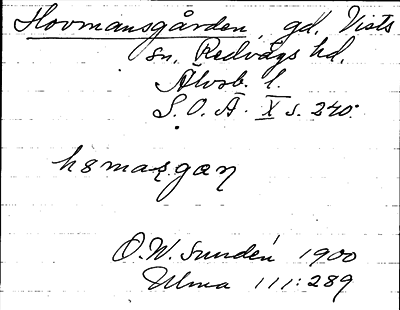 Hovmansgården, gd. Vists
sn, Redvägs hd.
Älvsb. l.
S. O. Ä. X s. 240.
O. W. Sundén 1900
Ulma 111:289